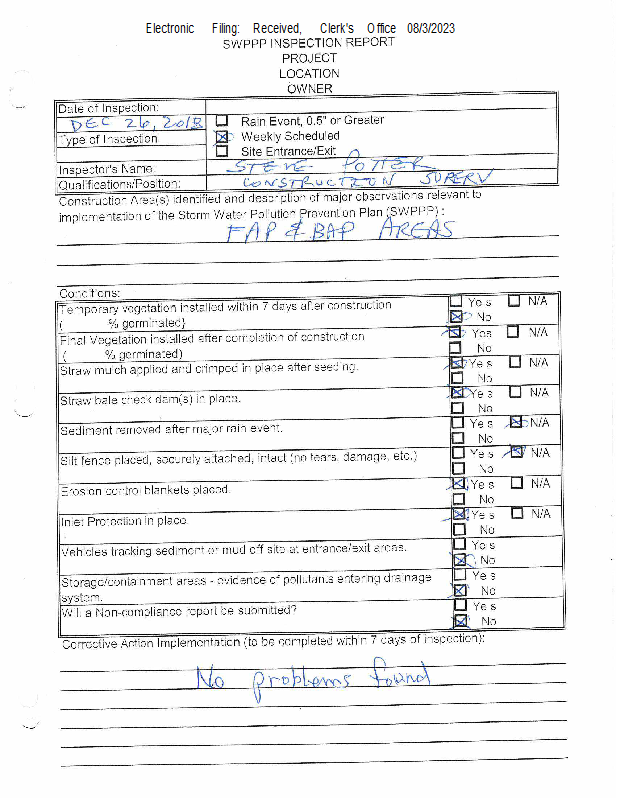 Electronic Filing: Received, Clerk's Office 08/3/2023
SWPPP INSPECTION REPORT
PROJECT
LOCATION
OWNER
Date of Inspection:
DEC 26, 2018
☐ Rain Event, 0.5" or Greater
Type of Inspection
☒ Weekly Scheduled
☐ Site Entrance/Exit
Inspector's Name: STEVE POTTER
Qualifications/Position: CONSTRUCTION SUPERV
Construction Area(s) identified and description of major observations relevant to
implementation of the Storm Water Pollution Prevention Plan (SWPPP) :
FAP & BAP AREAS
Conditions:
Temporary vegetation installed within 7 days after construction ☐ Yes ☐ N/A
( % germinated) ☒ No
Final Vegetation installed after completion of construction ☒ Yes ☐ N/A
( % germinated) ☐ No
Straw mulch applied and crimped in place after seeding. ☒ Yes ☐ N/A
☐ No
Straw bale check dam(s) in place. ☒ Yes ☐ N/A
☐ No
Sediment removed after major rain event. ☐ Yes ☒ N/A
☐ No
Silt fence placed, securely attached, intact (no tears, damage, etc.) ☐ Yes ☒ N/A
☐ No
Erosion control blankets placed. ☒ Yes ☐ N/A
☐ No
Inlet Protection in place ☒ Yes ☐ N/A
☐ No
Vehicles tracking sediment or mud off site at entrance/exit areas. ☐ Yes
☒ No
Storage/containment areas - evidence of pollutants entering drainage ☐ Yes
system. ☒ No
Will a Non-compliance report be submitted? ☐ Yes
☒ No
Corrective Action Implementation (to be completed within 7 days of inspection):
No problems found